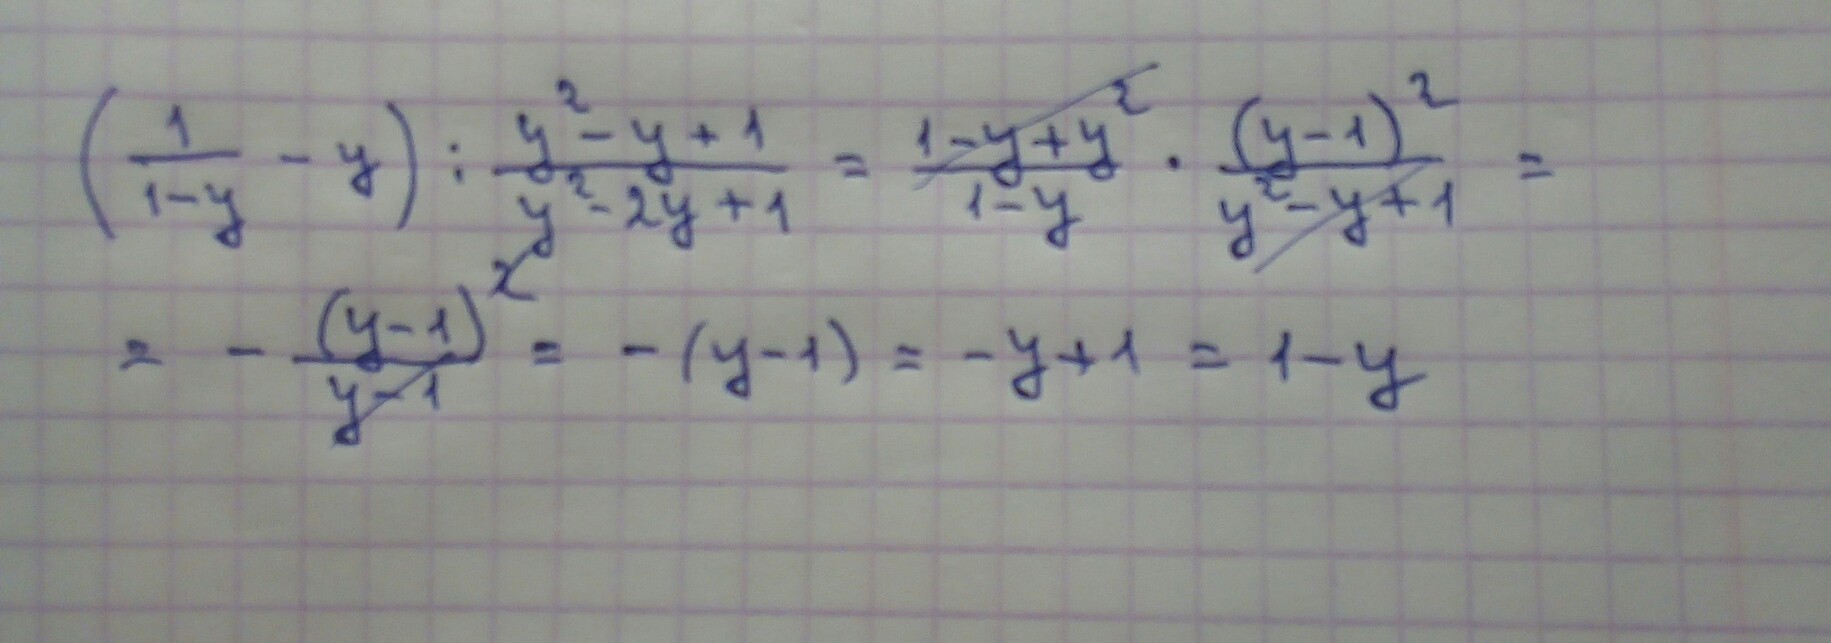 (1/(1-y) - y) : (y² - y + 1)/(y² - 2y + 1) = (1 - y + y²)/(1 - y) · (y - 1)²/(y² - y + 1) =
= - (y - 1)²/(y - 1) = - (y - 1) = - y + 1 = 1 - y